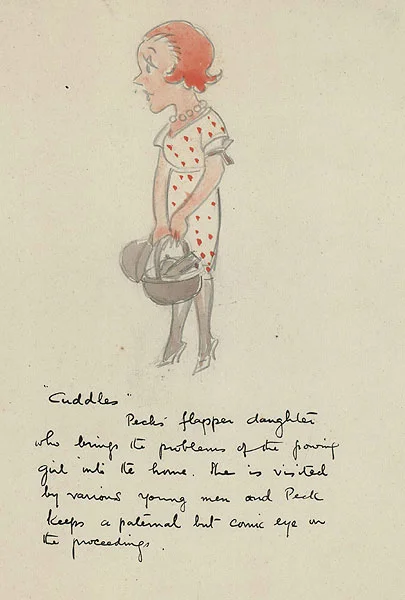 "Cuddles"
Peck's flapper daughter
who brings the problems of the growing
girl into the home. She is visited
by various young men and Peck
keeps a paternal but comic eye on
the proceedings.